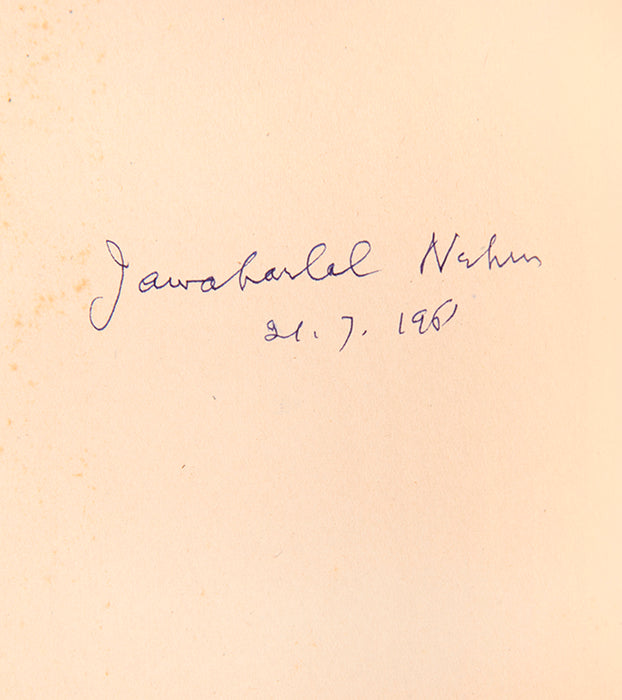 Jawaharlal Nehru
21. 7. 1961